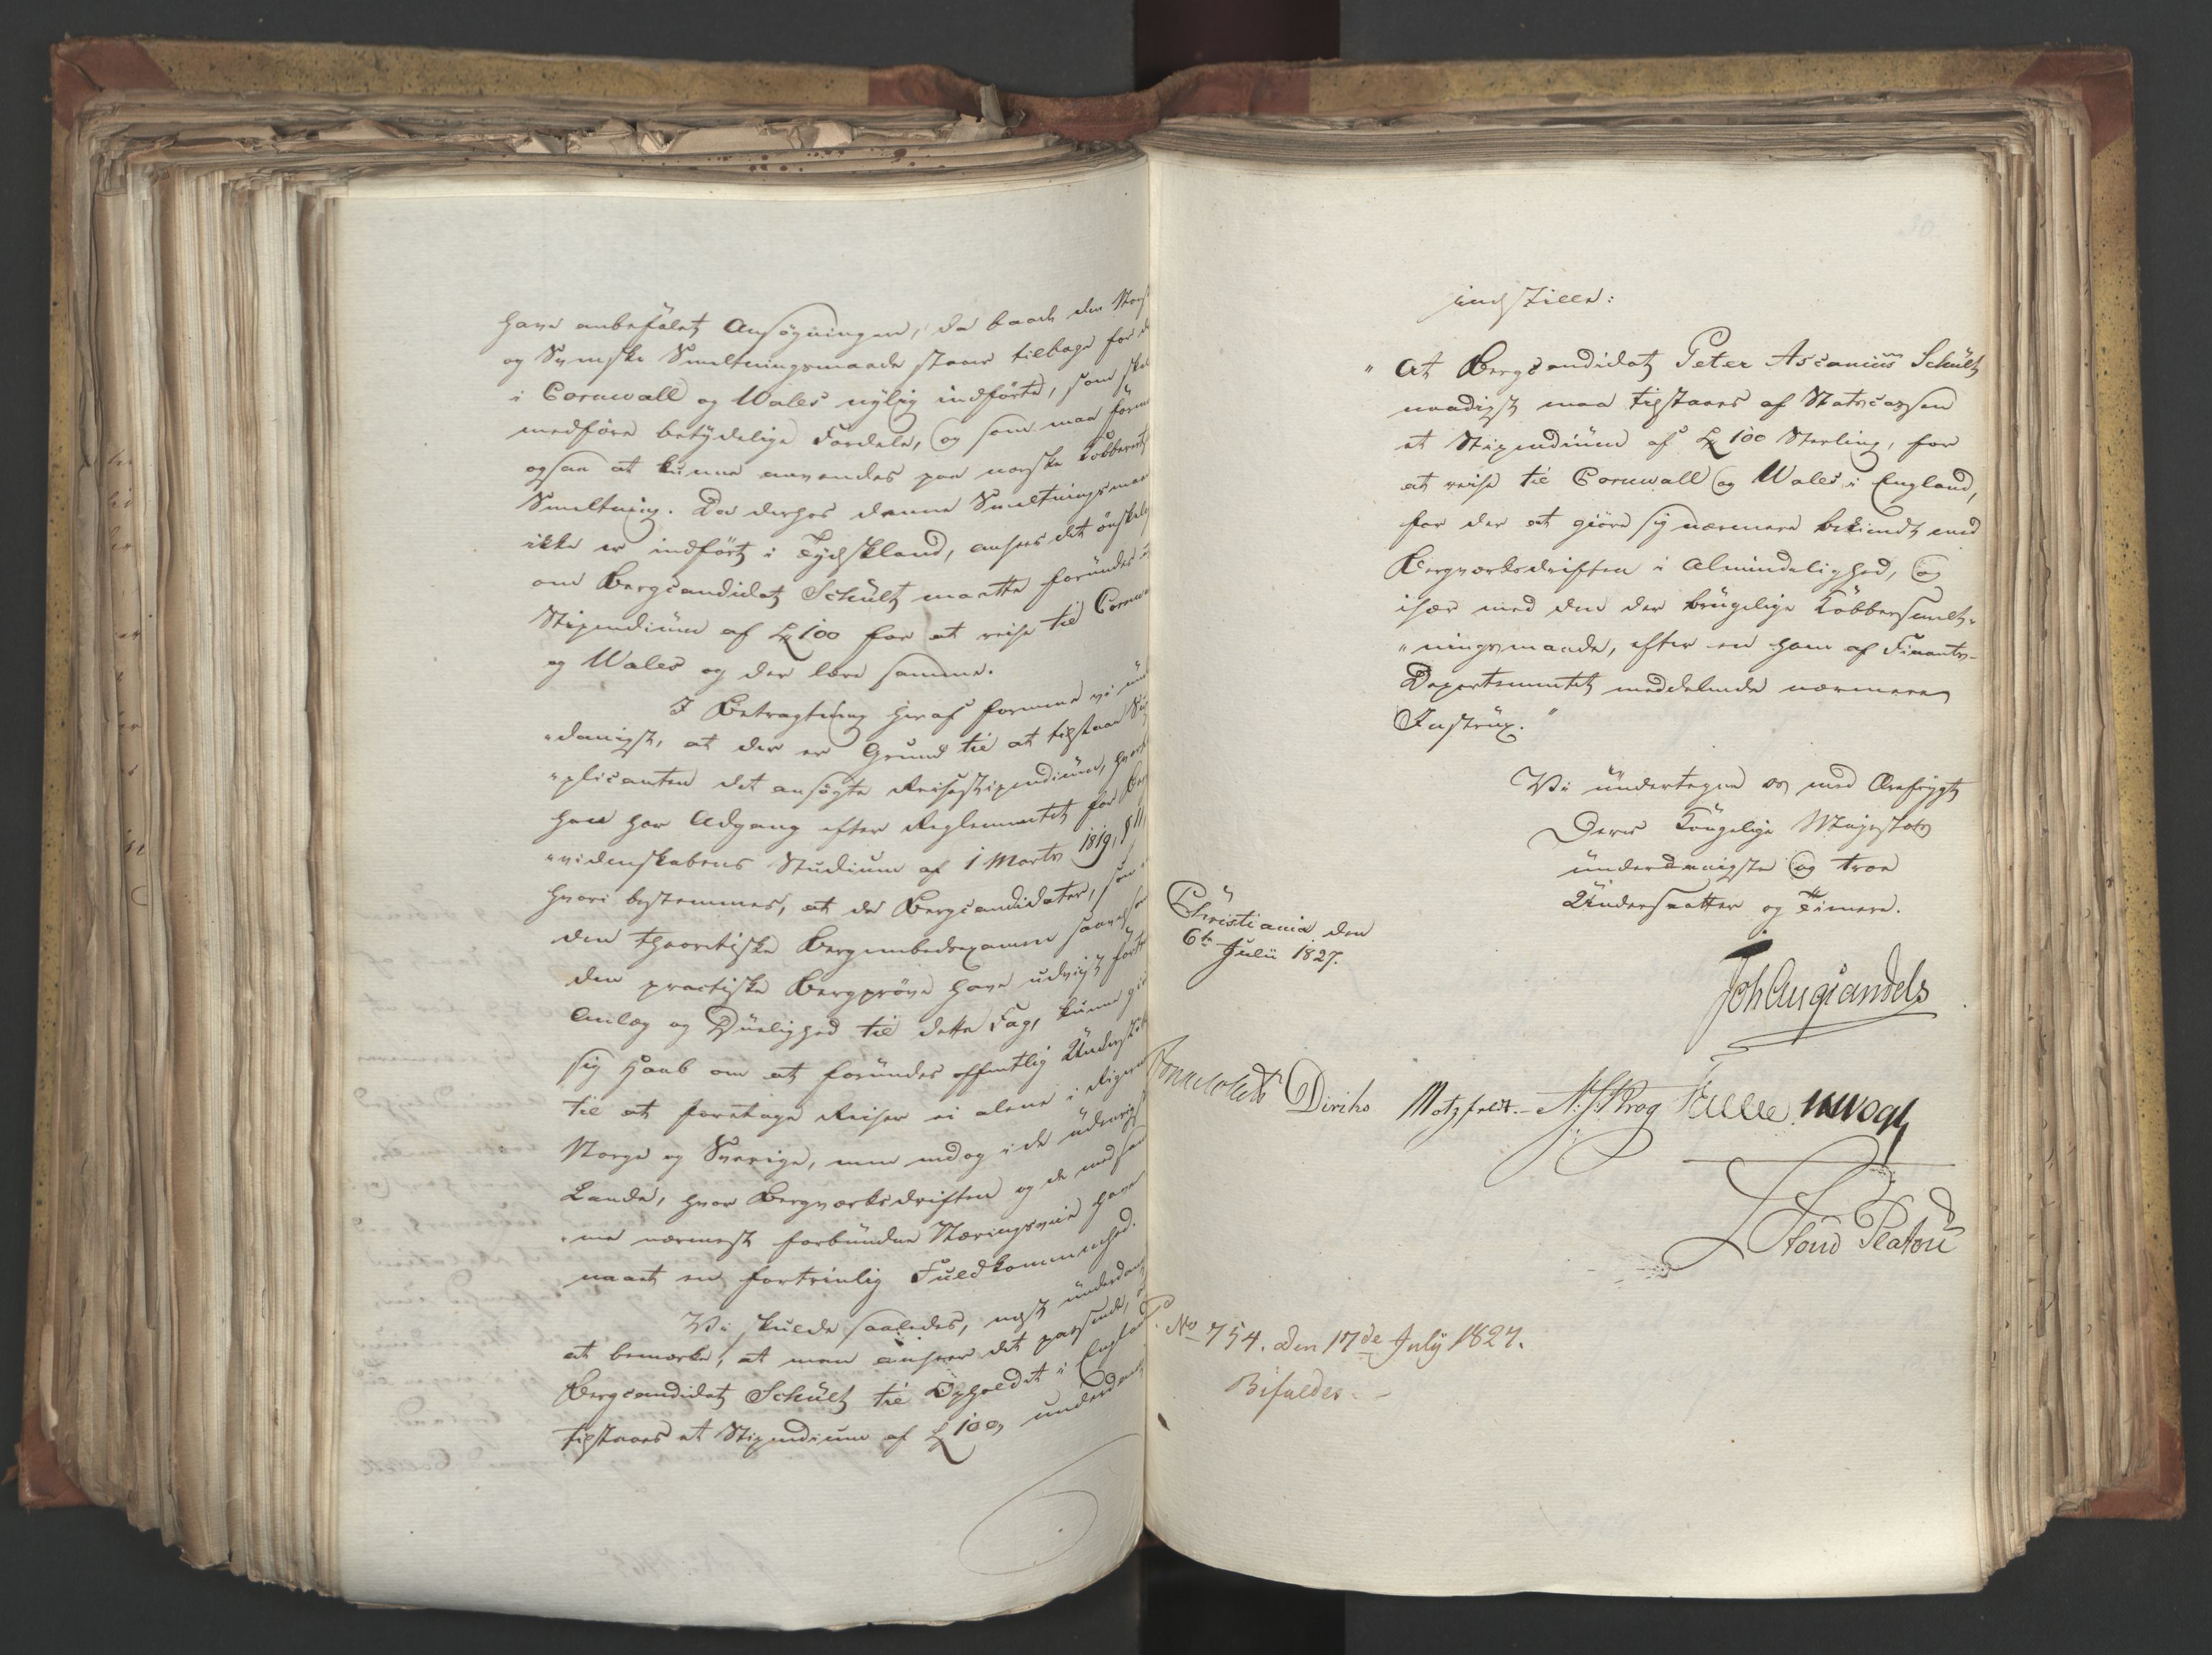 have anbefalet Ansøgningen, da baade den Norsk
og Svenske Smeltningsmaade staaer tilbage for d
i Cornwall og Wales nylig indførte, som skal
medføre betydelige Fordele, og som maa form
ogsaa at kunne anvendes paa norske Kobberert
Smeltning. Da derhos denne Smeltningsmaa
ikke er indført i Tydskland, ansees det ønskelig
om Bergcandidat Schult maatte forundes et
Stipendium af £ 100 for at reise til Cornwa
og Wales og der lære samme.
I Betragtning heraf formene vi un
"danigst, at der er Grund til at tilstaae Sup
"plicanten det ansøgte Reisestipendium, hvortil
han har Adgang efter Reglementet for Ber
"videnskabens Studium af 1 Marts 1819, § 11,
hvori bestemmes, at de Bergcandidater, som i
den theoretiske Bergembedsexamen saavelsom
den practiske Bergprøve have udvist fortr
Anlæg og Duelighed til dette Fag, kunne giø
sig Haab om at forundes offentlig Understøt
til at foretage Reiser ei alene i Rigerne
Norge og Sverige, men endog i de udenrigs
Lande, hvor Bergværksdriften og de med sam
"me nærmest forbundne Næringsveie have
naaet en fortrinlig Fuldkommenhed.
Vi skulde saaledes, næst underdan
at bemærke, at man anseer det passende, at
Bergcandidat Schult til Opholdet i England
tilstaaes et Stipendium af £ 100, underdanig
indstille:
"At Bergcandidat Peter Ascanius Schult
naadigst maa tilstaaes af Statscassen
et Stipendium af £ 100 Sterling, for
at reise til Cornwall og Wales i England,
for der at giøre sig nærmere bekiendt med
Bergværksdriften i Almindelighed, og
især med den der brugelige Kobbersmelt-
"ningsmaade, efter en ham af Finants-
Departementet meddelende nærmere
Instrux."
Vi undertegne os med Ærefrygt
Deres Kongelige Majestæts
underdanigste og troe
Undersaatter og Tienere.
Christiania den
6te Julii 1827.
Joh Aug Sandels
Sommerhielm Diriks Motzfeldt. N. J. Krog Collett JHVogt
Stoud Platou
No 754. den 17de July 1827.
Bifaldes.